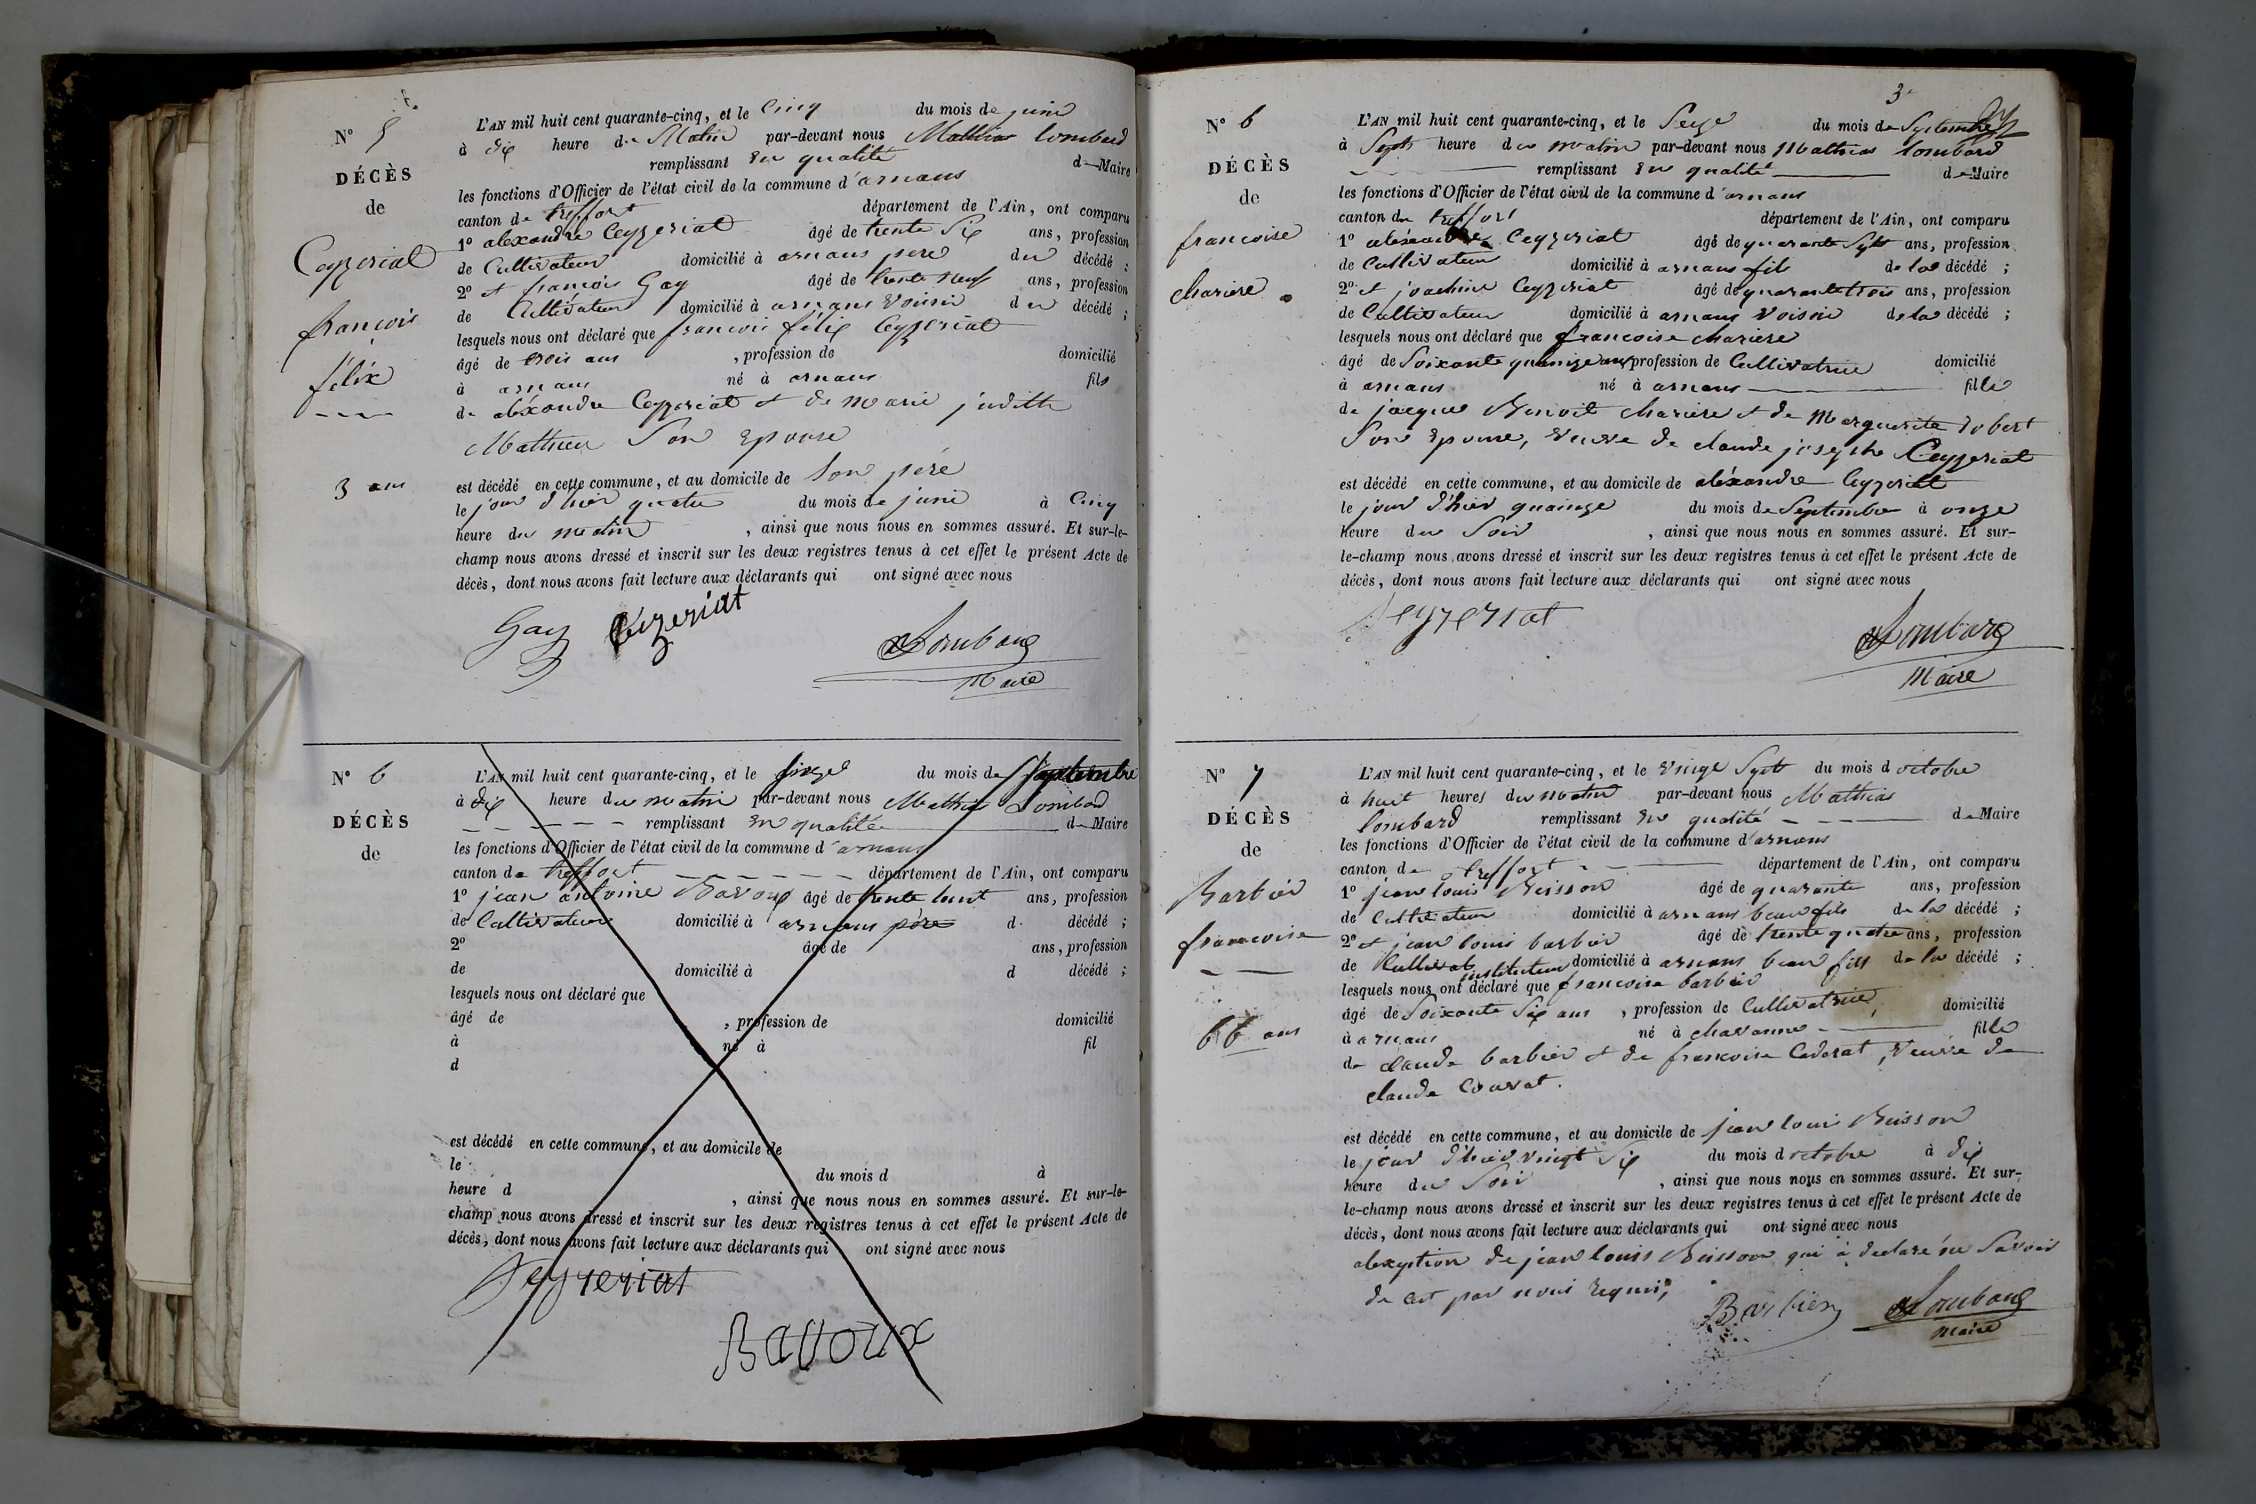 N° 5
DÉCÈS
de
Ceyzeriat
françois
félix
3 ans
L'AN mil huit cent quarante-cinq, et le Cinq du mois de juin
à dix heure du Matin par-devant nous Mathias lombard
remplissant En qualité de Maire
les fonctions d'Officier de l'état civil de la commune d'arnans
canton de treffort département de l'Ain, ont comparu
1° alexandre Ceyzeriat âgé de trente Six ans, profession
de Cultivateur domicilié à arnans pere du décédé ;
2° et françois Gay âgé de trente neuf ans, profession
de Cultivateur domicilié à arnans Voisin du décédé ;
lesquels nous ont déclaré que francois félix Ceyzeriat
âgé de trois ans , profession de domicilié
à arnans né à arnans fils
de aléxandre Ceyzeriat et de marie judith
Mathieu Son Epouse
est décédé en cette commune, et au domicile de Son pére
le jour d'hier quatre du mois de juin à Cinq
heure du matin , ainsi que nous nous en sommes assuré. Et sur-le-
champ nous avons dressé et inscrit sur les deux registres tenus à cet effet le présent Acte de
décès, dont nous avons fait lecture aux déclarants qui ont signé avec nous
Gay Ceyzeriat
Lombard
Maire
N° 6
DÉCÈS
de
L'AN mil huit cent quarante-cinq, et le du mois de Septembre
à dix heure du matin par-devant nous Mathias Lombard
remplissant En qualité de Maire
les fonctions d'Officier de l'état civil de la commune d'arnans
canton de treffort département de l'Ain, ont comparu
1° jean antoine Bavoux âgé de trente huit ans, profession
de Cultivateur domicilié à arnans père d décédé ;
2° âgé de ans, profession
de domicilié à d décédé ;
lesquels nous ont déclaré que
âgé de , profession de domicilié
à né à fil
d
est décédé en cette commune, et au domicile de
le du mois d à
heure d , ainsi que nous nous en sommes assuré. Et sur-le-
champ nous avons dressé et inscrit sur les deux registres tenus à cet effet le présent Acte de
décès, dont nous avons fait lecture aux déclarants qui ont signé avec nous
Ceyzeriat
Bavoux
3
N° 6
DÉCÈS
de
francoise
chariere
L'AN mil huit cent quarante-cinq, et le Seize du mois de Septembre
à Sept heure du matin par-devant nous Mathias lombard
remplissant En qualité de Maire
les fonctions d'Officier de l'état civil de la commune d'arnans
canton de treffort département de l'Ain, ont comparu
1° aléxandre Ceyzeriat âgé de quarante Sept ans, profession
de Cultivateur domicilié à arnans fils de la décédé ;
2° et joachim Ceyzeriat âgé de quarante trois ans, profession
de Cultivateur domicilié à arnans Voisin de la décédé ;
lesquels nous ont déclaré que francoise chariere
âgé de Soixante quinze ans profession de Cultivatrice domicilié
à arnans né à arnans fille
de jacques Benoit chariere et de Marguerite robert
Son Epouse, veuve de claude josephe Ceyzeriat
est décédé en cette commune, et au domicile de aléxandre Ceyzeriat
le jour d'hier quainze du mois de Septembre à onze
heure du Soir , ainsi que nous nous en sommes assuré. Et sur-
le-champ nous avons dressé et inscrit sur les deux registres tenus à cet effet le présent Acte de
décès, dont nous avons fait lecture aux déclarants qui ont signé avec nous
Ceyzeriat
Lombard
Maire
N° 7
DÉCÈS
de
Barbier
francoise
66 ans
L'AN mil huit cent quarante-cinq, et le Vingt Sept du mois d octobre
à huit heures du matin par-devant nous Mathias
lombard remplissant En qualité de Maire
les fonctions d'Officier de l'état civil de la commune d'arnans
canton de treffort département de l'Ain, ont comparu
1° jean louis Buisson âgé de quarante ans, profession
de Cultivateur domicilié à arnans beau fils de la décédé ;
2° et jean louis barbier âgé de trente quatre ans, profession
de Cultivat instituteur domicilié à arnans beau fils de la décédé ;
lesquels nous ont déclaré que francoise barbier
âgé de Soixante Six ans , profession de Cultivatrice domicilié
à arnans né à chavanne fille
de claude barbier et de francoise Cadorat, veuve de
claude Couvat.
est décédé en cette commune, et au domicile de jean louis Buisson
le jour d'hier vingt Six du mois d octobre à dix
heure du Soir , ainsi que nous nous en sommes assuré. Et sur-
le-champ nous avons dressé et inscrit sur les deux registres tenus à cet effet le présent Acte de
décès, dont nous avons fait lecture aux déclarants qui ont signé avec nous
alexception de jean louis Buisson qui à declaré ne Savoir
de cet par nous requis,
Barbier Lombard
maire